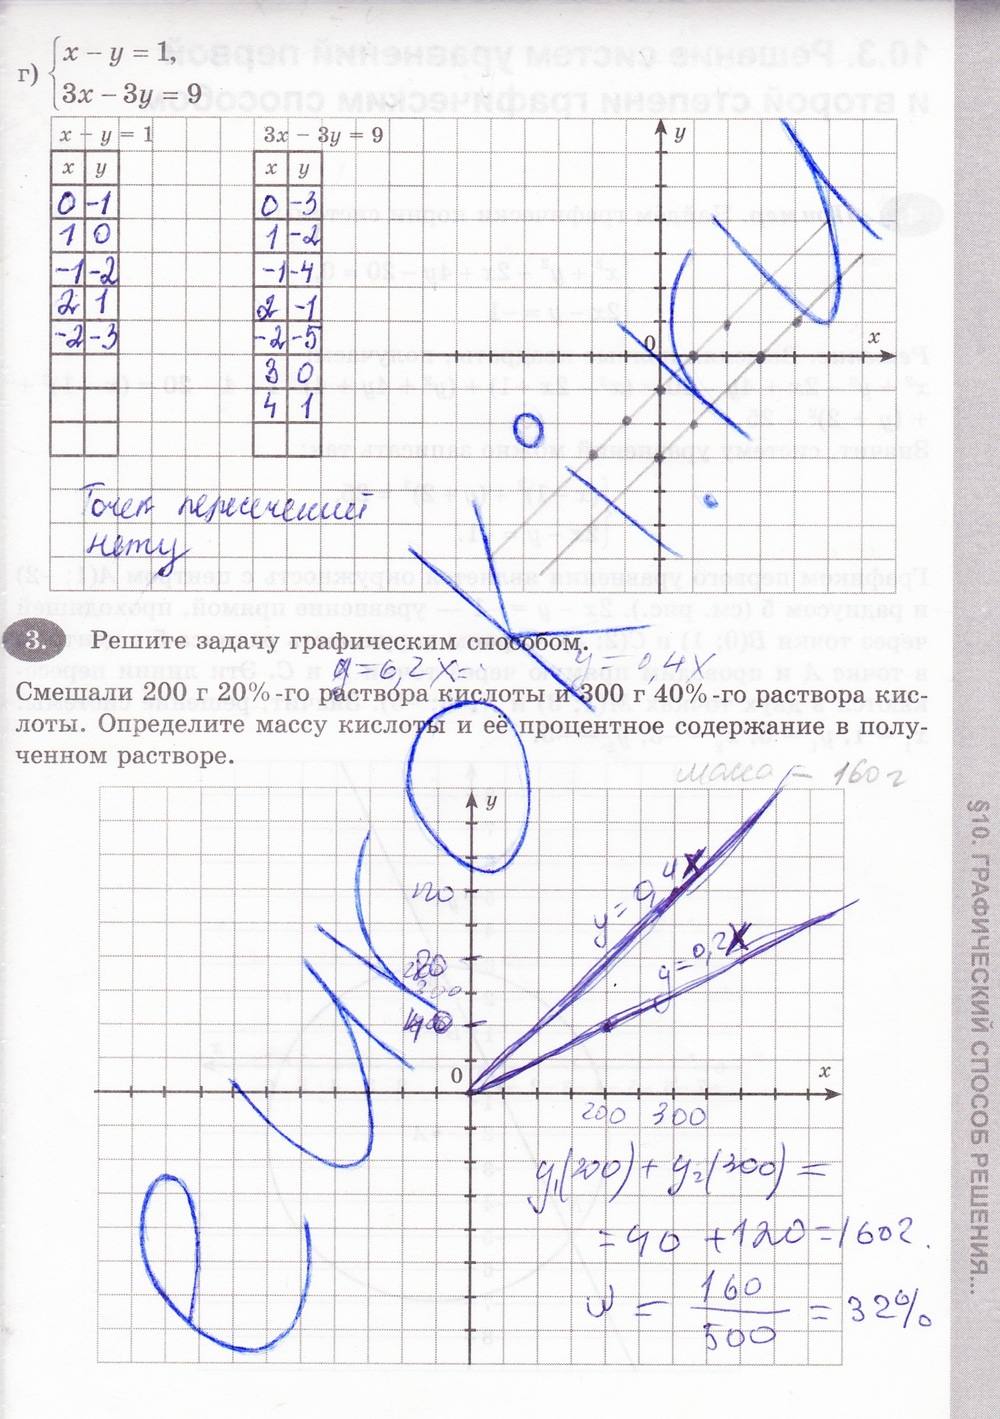 г) { x − y = 1,
3x − 3y = 9
x − y = 1
x y
0 -1
1 0
-1 -2
2 1
-2 -3
3x − 3y = 9
x y
0 -3
1 -2
-1 -4
2 -1
-2 -5
3 0
4 1
y
0
x
Точек пересечений
нету
3. Решите задачу графическим способом.
y = 0,2x y = 0,4x
Смешали 200 г 20%-го раствора кислоты и 300 г 40%-го раствора кис-
лоты. Определите массу кислоты и её процентное содержание в полу-
ченном растворе.
масса – 160 г
y
120
y = 0,4x
y = 0,2x
40
0
x
200 300
y₁(200) + y₂(300) =
= 40 + 120 = 160 г.
w = 160/500 = 32%
§10. ГРАФИЧЕСКИЙ СПОСОБ РЕШЕНИЯ...